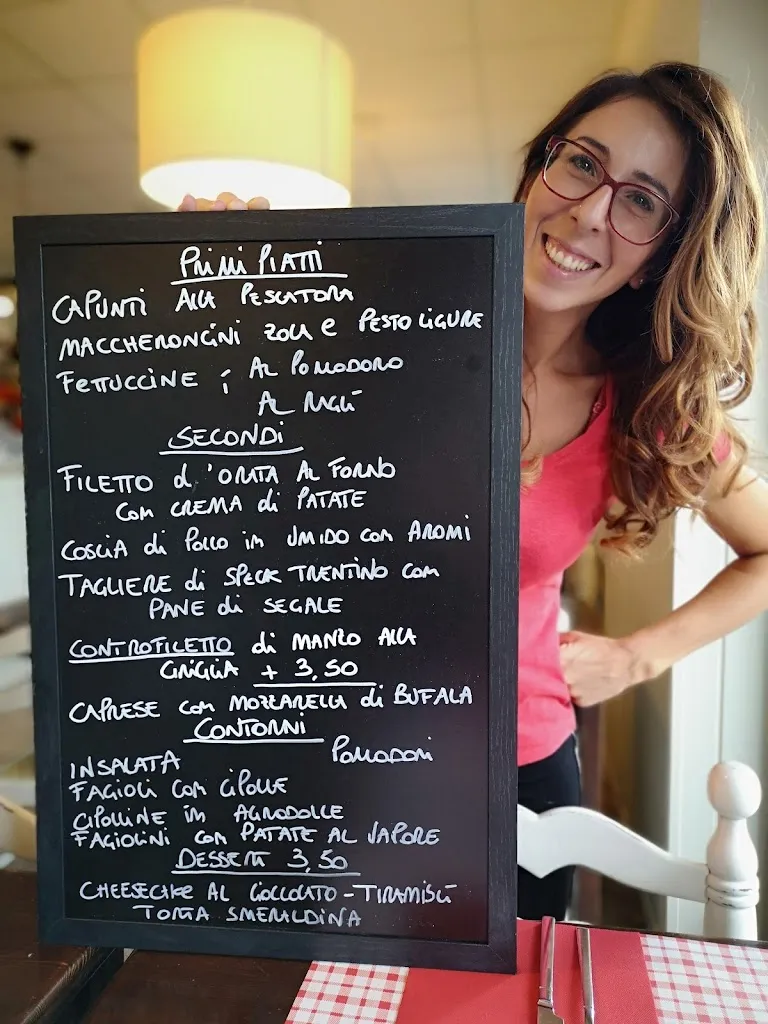 PRIMI PIATTI
CAPUNTI ALLA PESCATORA
MACCHERONCINI ZOLA e PESTO LIGURE
FETTUCCINE ; AL POMODORO
AL RAGÙ
SECONDI
FILETTO d'ORATA AL FORNO
CON CREMA di PATATE
COSCIA di POLLO in UMIDO con AROMI
TAGLIERE di SPECK TRENTINO con
PANE di SEGALE
CONTROFILETTO di MANZO ALLA
GRIGLIA + 3,50
CAPRESE con MOZZARELLA di BUFALA
CONTORNI
INSALATA POMODORI
FAGIOLI CON CIPOLLE
CIPOLLINE in AGRODOLCE
FAGIOLINI con PATATE AL VAPORE
DESSERT 3,50
CHEESECAKE AL CIOCCOLATO - TIRAMISÙ
TORTA SMERALDINA